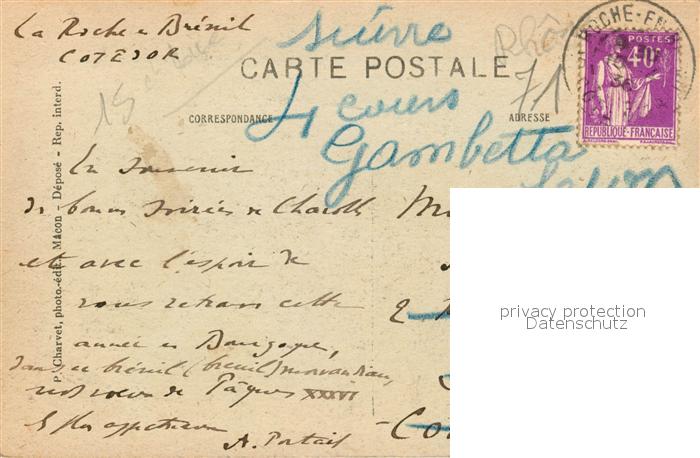 La Roche en Brénil
COTE D'OR
suivre
Rhône
CARTE POSTALE
15
71
CORRESPONDANCE
ADRESSE
4 cours
Gambetta
Lyon
POSTES
40c
REPUBLIQUE-FRANCAISE
ROCHE-EN
36
P. Charvet, photo.-édit., Mâcon - Déposé - Rep. interd.
En souvenir
de bonnes soirées de Charolles
et avec l'espoir de
vous cette
année en Bourgogne,
dans ce brénil (breuil) morvandiau,
nos voeux de Pâques XXXVI
& plus affectueux
A. Portail
2
privacy protection
Datenschutz